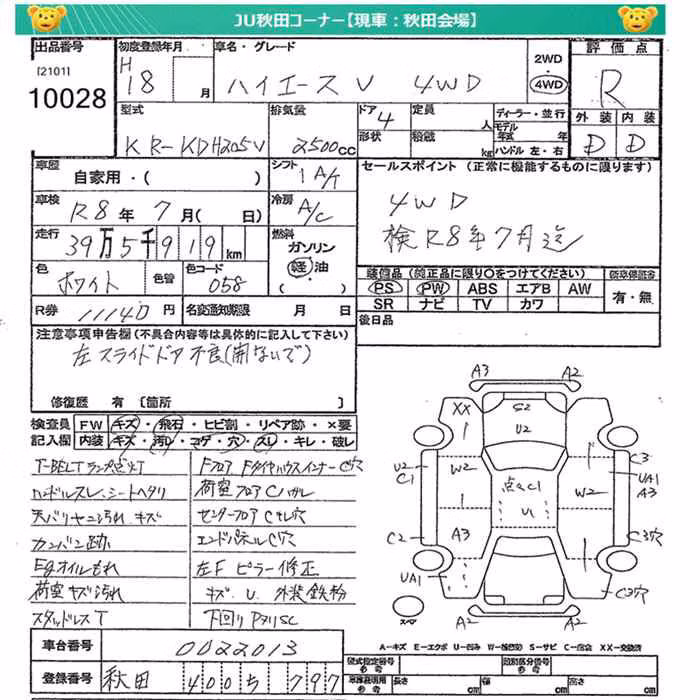 JU秋田コーナー【現車：秋田会場】
出品番号
[2101]
10028
初度登録年月
H
18 月
車名・グレード
ハイエースV 4WD
2WD
・
4WD
評価点
R
外装 内装
D D
型式
KR-KDH205V
排気量
2500cc
ドア
4
形状
定員
人
積載
kg
ディーラー・並行
モデル
年式 年
ハンドル 左・右
車歴
自家用・( )
シフト
1 A/T
車検
R8年 7月( 日)
冷房
A/C
走行
39万5千919km
燃料
ガソリン
軽油
色
ホワイト
色替
色コード
058
( )
R券 11140円
名変通知期限 月 日
セールスポイント (正常に機能するものに限ります)
4WD
検R8年7月迄
装備品(純正品に限り○をつけてください)
PS PW ABS エアB AW
SR ナビ TV カワ
有・無
後日品
注意事項申告欄(不具合内容等は具体的に記入して下さい)
左スライドドア不良(開ないで)
修復歴 有 [箇所 ]
検査員 FW キズ・飛石・ヒビ割・リペア跡・×要
記入欄 内装 キズ・汚れ・コゲ・穴・スレ・キレ・破レ
T-BELTランプ点灯
ハンドルスレ、シートヘタリ
天バリヤニ汚れ キズ
カンバン跡
Egオイルもれ
荷室キズ汚れ
スタッドレスT
Fフロア FタイヤハウスインナーC穴
荷室フロアCハガレ
センターフロアCサビ穴
エンドパネルC穴
左Fピラー修正
キズ、U、外装鉄粉
下回りPヌリSC
車台番号 0022013
登録番号 秋田 400 5 797
A3 A2
XX
S2
U2
U2
C1
W2
点々C1
U1
W2
C3
UA1
A3
C2
A3
C3穴
UA1
C3穴
A2 A2
スペア
A-キズ E-エクボ U-凹み W-補修(波) S-サビ C-腐食 XX-交換済
型式指定番号
参考
類別区分番号
参考
車検証明用
参考
長さ cm
幅 cm
高さ cm